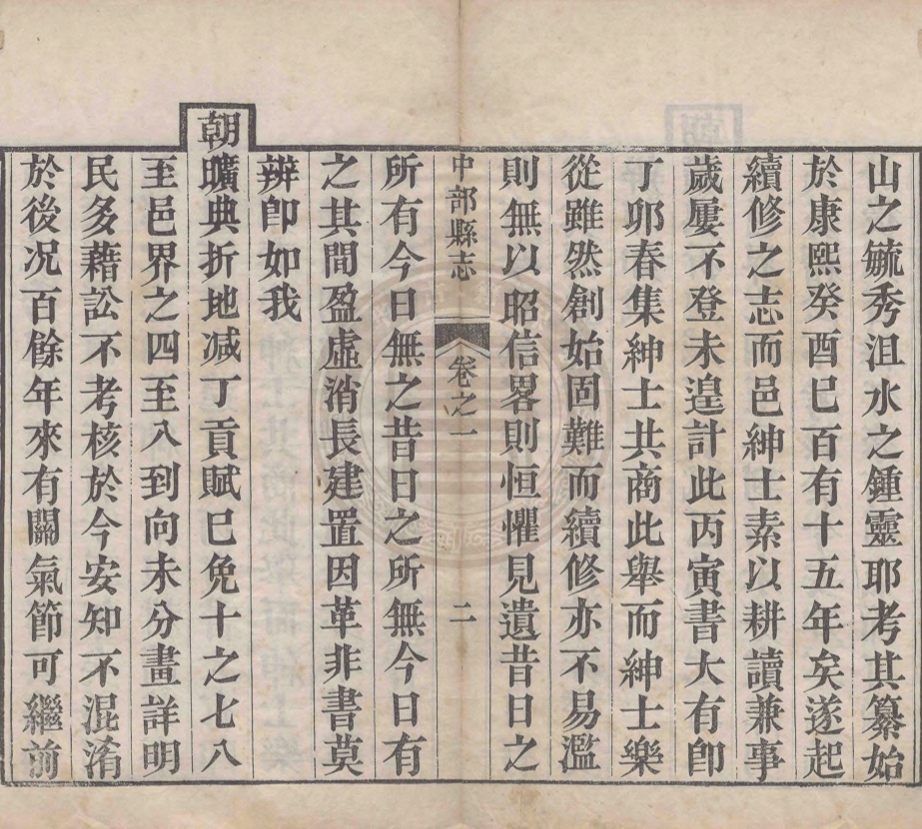 山之毓秀沮水之鍾靈耶考其纂始
於康熙癸酉巳百有十五年矣遂起
續修之志而邑紳士素以耕讀兼事
歲屢不登未遑計此丙寅書大有卽
丁卯春集紳士共商此舉而紳士樂
從雖然創始固難而續修亦不易濫
則無以昭信畧則恒懼見遺昔日之
中部縣志 卷之一 二
所有今日無之昔日之所無今日有
之其間盈虛消長建置因革非書莫
辨卽如我
朝曠典折地减丁貢賦巳免十之七八
至邑界之四至八到向未分畫詳明
民多藉訟不考核於今安知不混淆
於後况百餘年來有關氣節可繼前